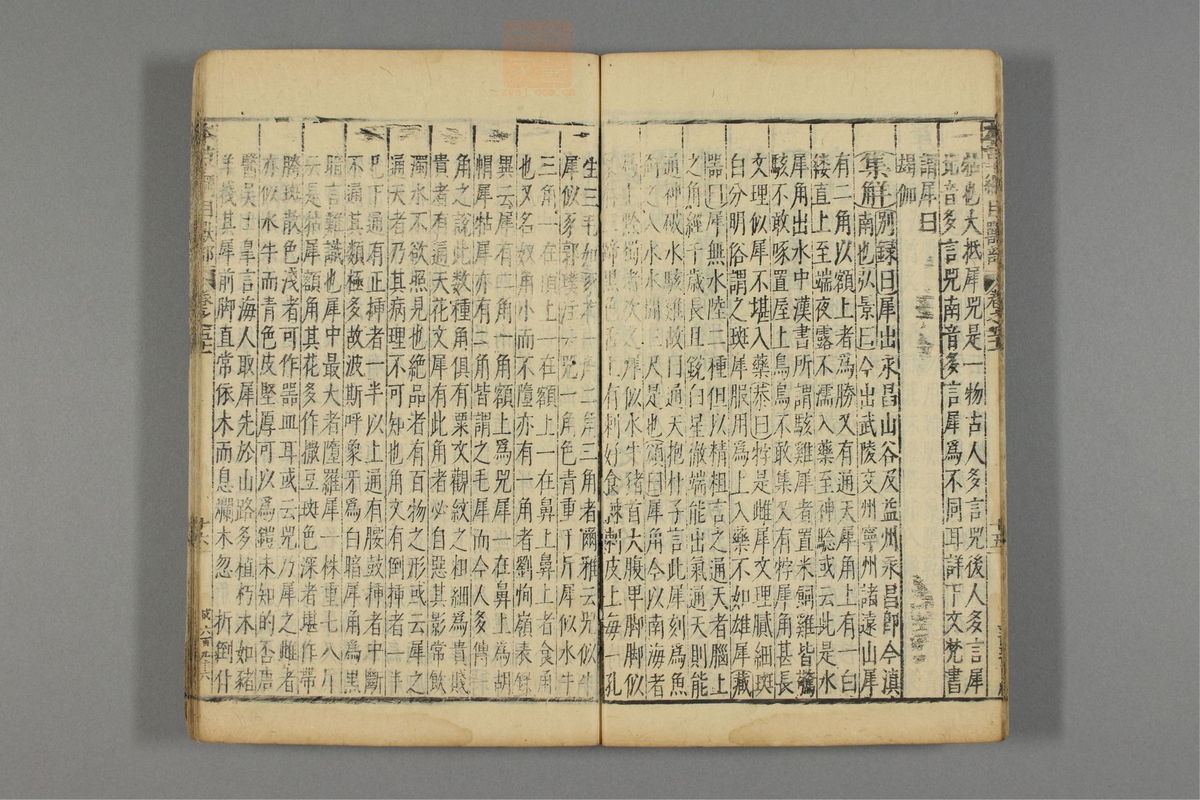 牸也大抵犀兕是一物古人多言兕後人多言犀
北音多言兕南音多言犀爲不同耳詳下文梵書
謂犀曰
朅伽
集解別録曰犀出永昌山谷及益州永昌即今滇
南也弘景曰今出武陵交州寧州諸遠山犀
有二角以額上者爲勝又有通天犀角上有一白
縷直上至端夜露不濡入藥至神驗或云此是水
犀角出水中漢書所謂駭雞犀者置米飼雞皆驚
駭不敢啄置屋上烏鳥不敢集又有牸犀角甚長
文理似犀不堪入藥恭曰牸是雌犀文理膩細斑
白分明俗謂之斑犀服用爲上入藥不如雄犀藏
器曰犀無水陸二種但以精粗言之通天者腦上
之角經千歲長且銳白星徹端能出氣通天則能
通神破水駭雞故曰通天抱朴子言此犀刻爲魚
銜之入水水開三尺是也頌曰犀角今以南海者
爲上黔蜀者次之犀似水牛猪首大腹卑脚脚似
有刺好食棘刺皮上每一孔
生三毛如豕有一角二角三角者爾雅云兕似牛
犀似豕郭璞註云兕一角色青重千斤犀似水牛
三角一在頂上一在額上一在鼻上鼻上者食角
也又名奴角小而不隋亦有一角者劉恂嶺表錄
異云犀有二角一角額上爲兕犀一在鼻上爲胡
帽犀牯犀亦有二角皆謂之毛犀而今人多傳一
角之說此數種角俱有粟文觀紋之粗細爲貴賤
貴者有通天花文犀有此角者必自惡其影常飲
濁水不欲照見也絶品者有百物之形或云犀之
通天者乃其病理不可知也角文有倒挿者一半
已下通有正挿者一半以上通有腰鼓挿者中斷
不通其類極多故波斯呼象牙爲白暗犀角爲黑
暗言難識也犀中最大者墮羅犀一株重七八斤
云是牯犀額角其花多作撒豆斑色深者堪作帶
胯斑散色淺者可作器皿耳或云兕乃犀之雌者
亦似水牛而青色皮堅厚可以爲鎧未知的否唐
醫吳士皐言海人取犀先於山路多植朽木如豬
羊棧其犀前脚直常依木而息爛木忽折倒仆